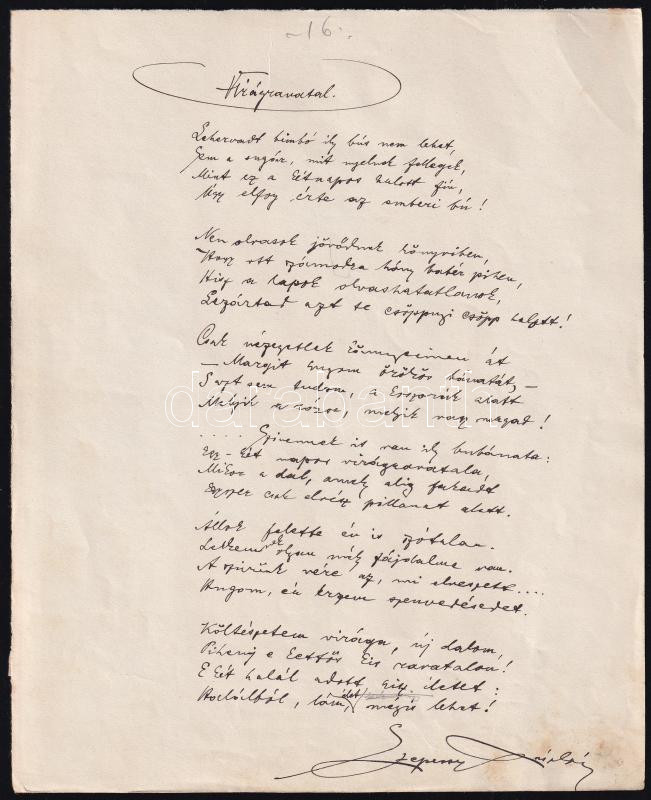 ~16.
Virágravatal.
Lehervadt bimbó ily bús nem lehet,
Sem a sugár, mit nyelnek fellegek,
Mint ez a kétnapos halott fiú,
Úgy elfog érte az emberi bú!
Nem olvasok jövődnek könyvében,
Hogy ott számodra hány babér pihen,
Hisz a lapok olvashatatlanok,
Lezártad azt te csöppnyi csöpp halott!
Csak nézegetlek könnyeimen át
— Margit húgom örökös bánatát, —
S azt sem tudom, a koszorúk alatt
Melyik a rózsa, melyik vagy magad!
.... Szivemnek is van ily bubánata:
Egy-két napos virágravatala,
Mikor a dal, amely alig fakadt
Egyszer csak elvész pillanat alatt.
Állok felette én is szótalan.
Lelkemnek olyan mély fájdalma van.
A szivünk vére az, mi elveszett....
Hugom, én érzem szenvedésedet.
Költészetem virága, új dalom,
Pihenj e kettős kis ravatalon!
E két halál adott egy életet:
Halálból, lám, élet mégis lehet!
darabanth